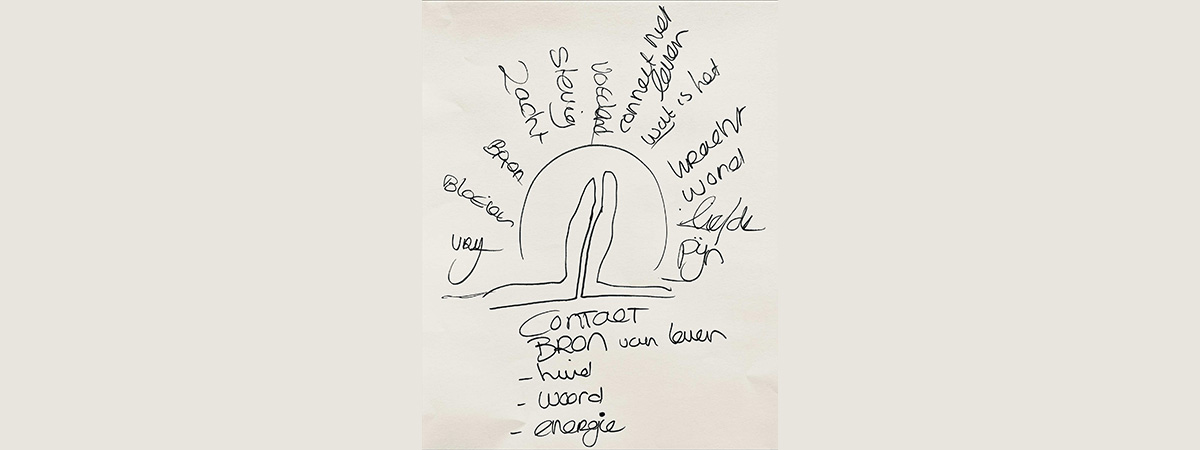 Vry
Bloeien
Bron
Zacht
Stevig
Voedend
connect met
leven
wat is het
kracht
word
liefde
Pijn
Contact
BRON van leven
- huid
- woord
- energie